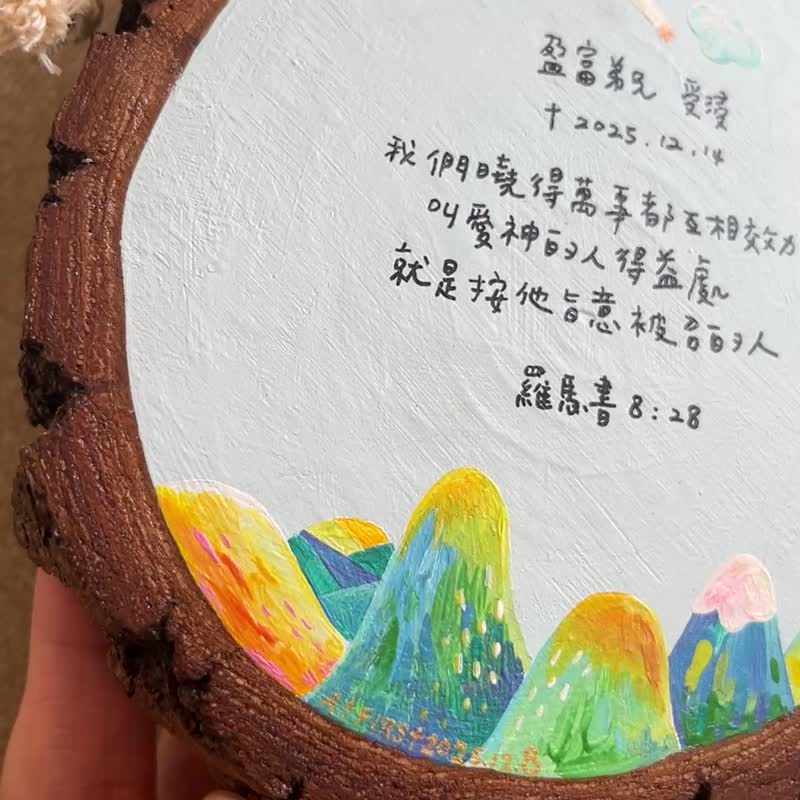 盈富弟兄 受浸
† 2025.12.14
我們曉得萬事都互相效力
叫愛神的人得益處
就是按他旨意被召的人
羅馬書 8:28
ATFIRST 2025.12.8